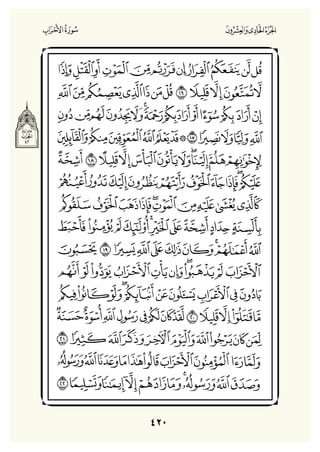 الجزء الحادي والعشرون
سورة الأحزاب
قُل لَّن يَنفَعَكُمُ ٱلْفِرَارُ إِن فَرَرْتُم مِّنَ ٱلْمَوْتِ أَوِ ٱلْقَتْلِ وَإِذًا
لَّا تُمَتَّعُونَ إِلَّا قَلِيلًا ١٦ قُلْ مَن ذَا ٱلَّذِى يَعْصِمُكُم مِّنَ ٱللَّهِ
إِنْ أَرَادَ بِكُمْ سُوٓءًا أَوْ أَرَادَ بِكُمْ رَحْمَةً ۚ وَلَا يَجِدُونَ لَهُم مِّن دُونِ
ٱللَّهِ وَلِيًّا وَلَا نَصِيرًا ١٧ ۞ قَدْ يَعْلَمُ ٱللَّهُ ٱلْمُعَوِّقِينَ مِنكُمْ وَٱلْقَآئِلِينَ
لِإِخْوَٰنِهِمْ هَلُمَّ إِلَيْنَا ۖ وَلَا يَأْتُونَ ٱلْبَأْسَ إِلَّا قَلِيلًا ١٨ أَشِحَّةً
عَلَيْكُمْ ۖ فَإِذَا جَآءَ ٱلْخَوْفُ رَأَيْتَهُمْ يَنظُرُونَ إِلَيْكَ تَدُورُ أَعْيُنُهُمْ
كَٱلَّذِى يُغْشَىٰ عَلَيْهِ مِنَ ٱلْمَوْتِ ۖ فَإِذَا ذَهَبَ ٱلْخَوْفُ سَلَقُوكُم
بِأَلْسِنَةٍ حِدَادٍ أَشِحَّةً عَلَى ٱلْخَيْرِ ۚ أُو۟لَٰٓئِكَ لَمْ يُؤْمِنُوا۟ فَأَحْبَطَ
ٱللَّهُ أَعْمَٰلَهُمْ ۚ وَكَانَ ذَٰلِكَ عَلَى ٱللَّهِ يَسِيرًا ١٩ يَحْسَبُونَ
ٱلْأَحْزَابَ لَمْ يَذْهَبُوا۟ ۖ وَإِن يَأْتِ ٱلْأَحْزَابُ يَوَدُّوا۟ لَوْ أَنَّهُم
بَادُونَ فِى ٱلْأَعْرَابِ يَسْـَٔلُونَ عَنْ أَنۢبَآئِكُمْ ۖ وَلَوْ كَانُوا۟ فِيكُم
مَّا قَٰتَلُوٓا۟ إِلَّا قَلِيلًا ٢٠ لَّقَدْ كَانَ لَكُمْ فِى رَسُولِ ٱللَّهِ أُسْوَةٌ حَسَنَةٌ
لِّمَن كَانَ يَرْجُوا۟ ٱللَّهَ وَٱلْيَوْمَ ٱلْـَٔاخِرَ وَذَكَرَ ٱللَّهَ كَثِيرًا ٢١
وَلَمَّا رَءَا ٱلْمُؤْمِنُونَ ٱلْأَحْزَابَ قَالُوا۟ هَٰذَا مَا وَعَدَنَا ٱللَّهُ وَرَسُولُهُۥ
وَصَدَقَ ٱللَّهُ وَرَسُولُهُۥ ۚ وَمَا زَادَهُمْ إِلَّآ إِيمَٰنًا وَتَسْلِيمًا ٢٢
٤٢٠